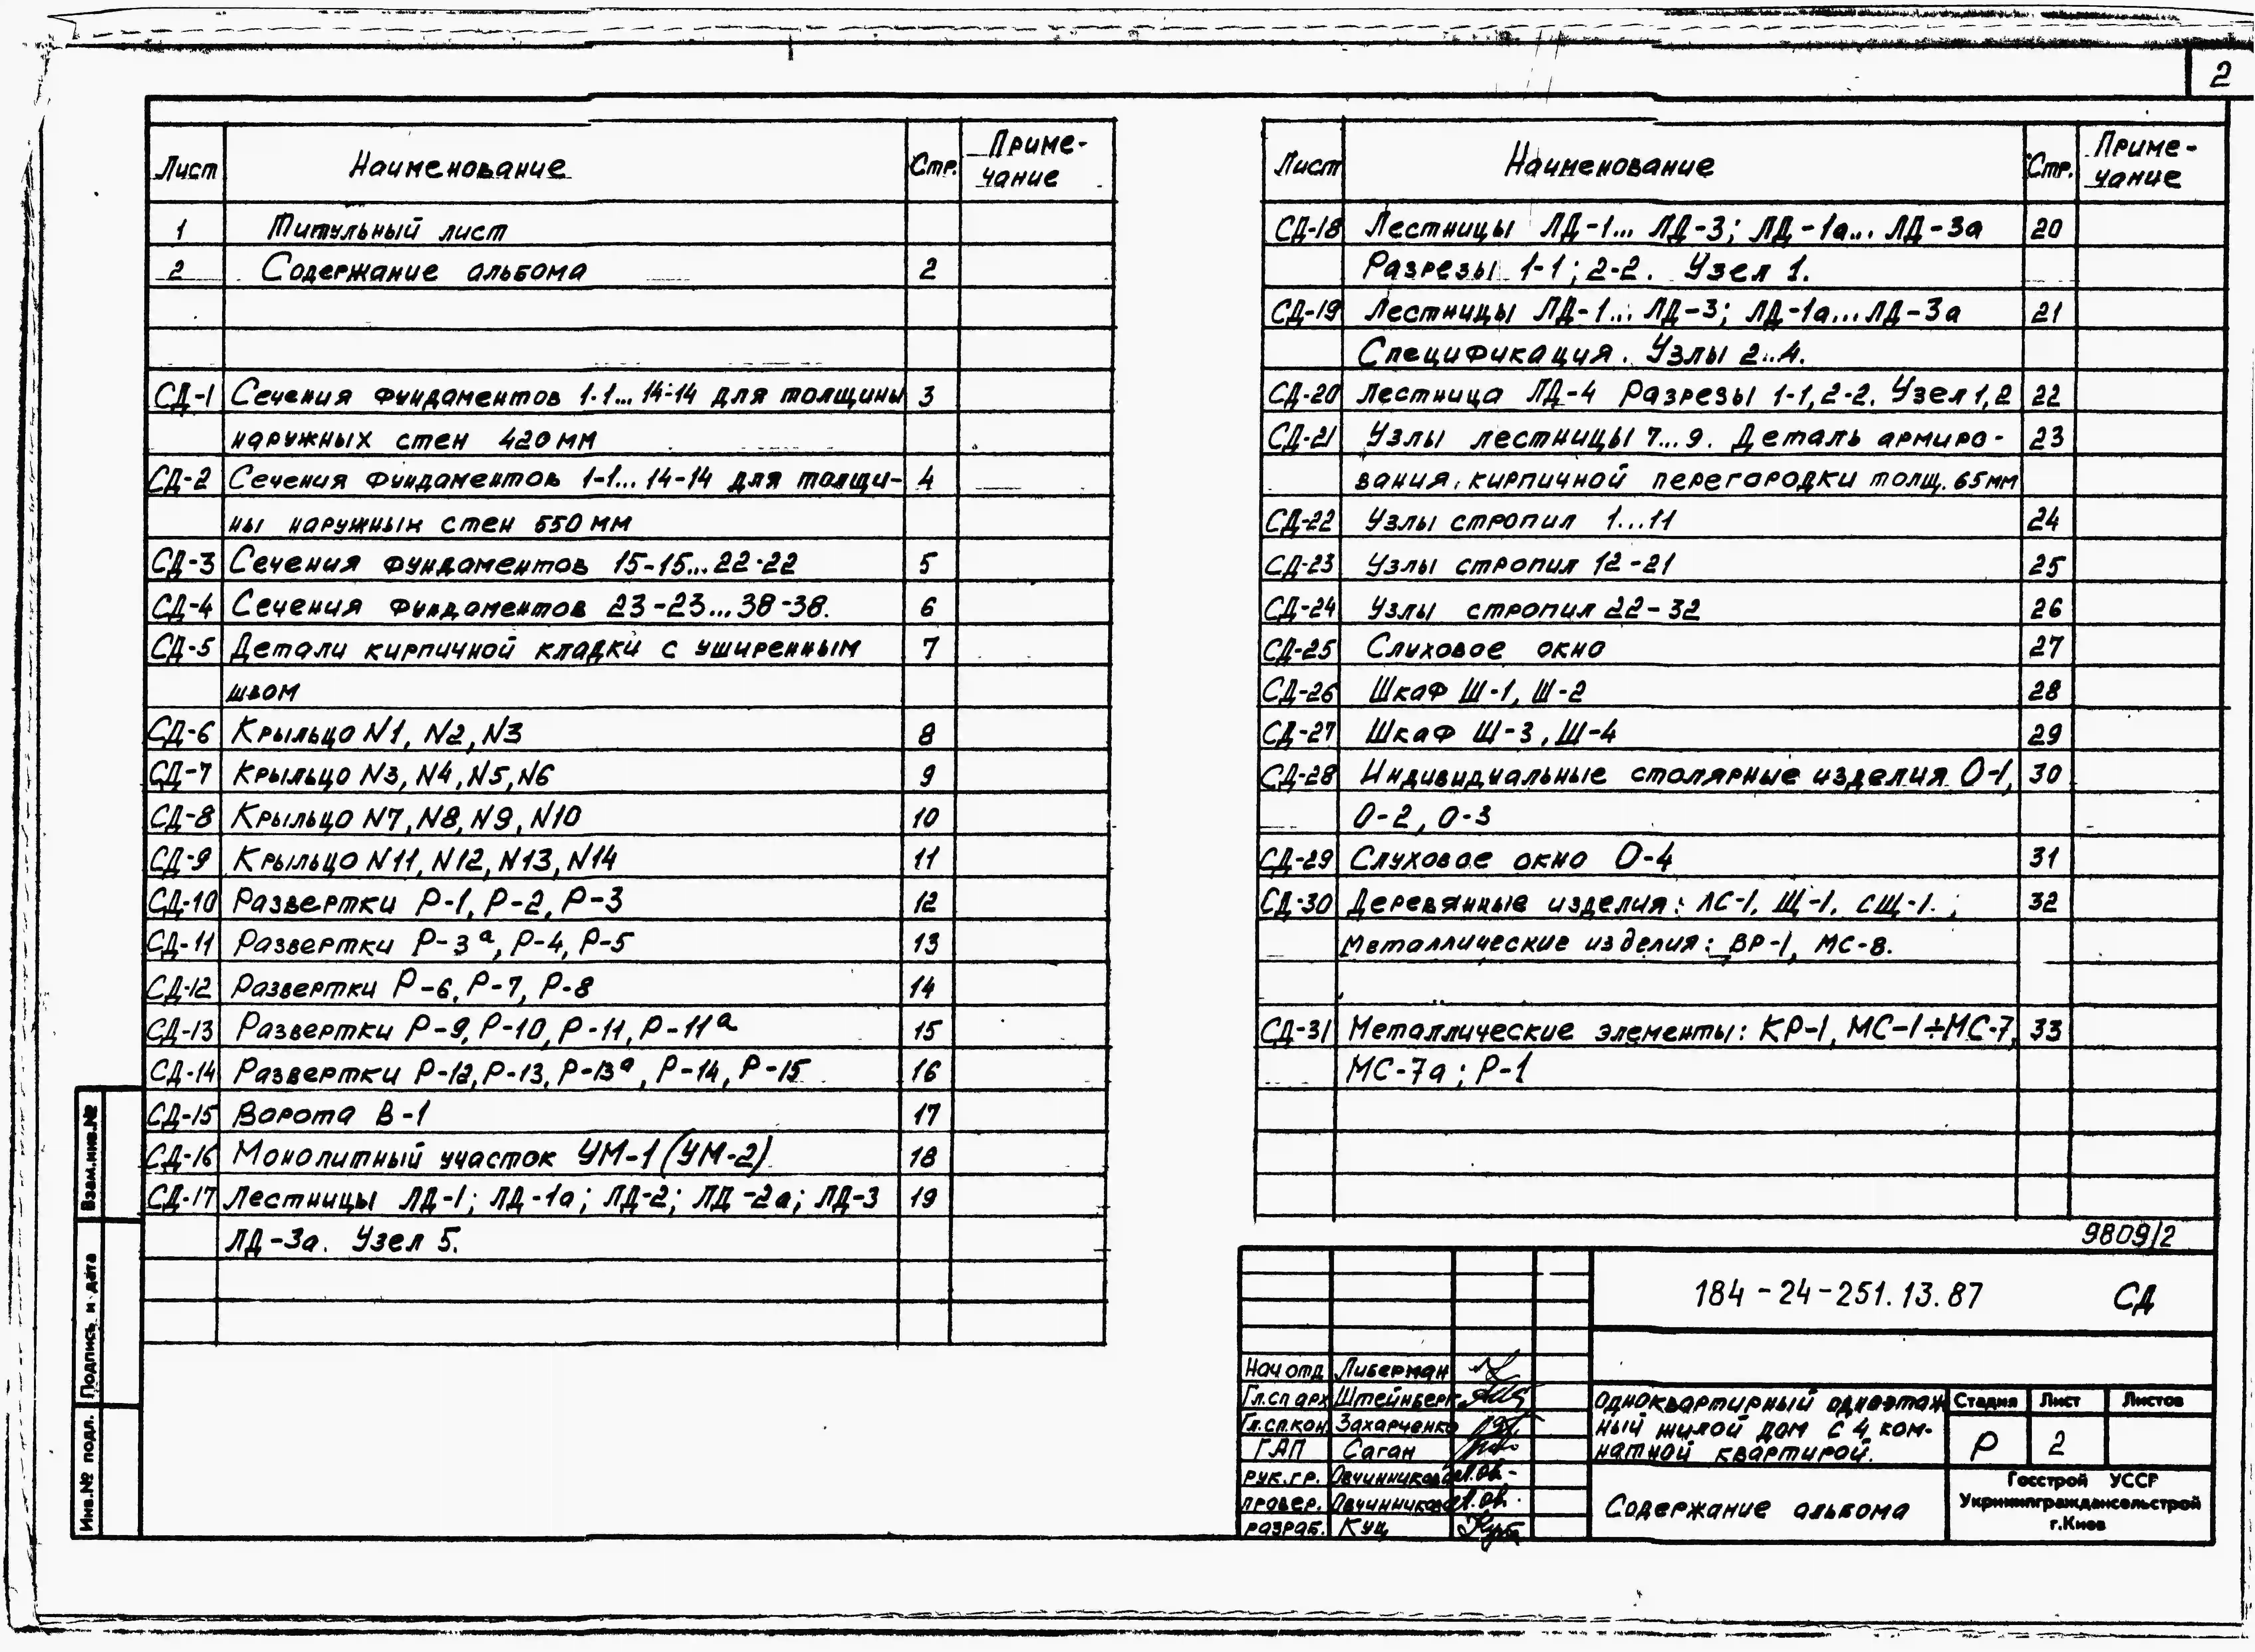 2
Лист Наименование Стр. Приме-
чание
1 Титульный лист
2 Содержание альбома 2
СД-1 Сечения фундаментов 1-1...14-14 для толщины 3
наружных стен 420мм
СД-2 Сечения фундаментов 1-1...14-14 для толщи- 4
ны наружных стен 550мм
СД-3 Сечения фундаментов 15-15...22-22 5
СД-4 Сечения фундаментов 23-23...38-38. 6
СД-5 Детали кирпичной кладки с уширенным 7
швом
СД-6 Крыльцо N1, N2, N3 8
СД-7 Крыльцо N3, N4, N5, N6 9
СД-8 Крыльцо N7, N8, N9, N10 10
СД-9 Крыльцо N11, N12, N13, N14 11
СД-10 Развертки Р-1, Р-2, Р-3 12
СД-11 Развертки Р-3а, Р-4, Р-5 13
СД-12 Развертки Р-6, Р-7, Р-8 14
СД-13 Развертки Р-9, Р-10, Р-11, Р-11а 15
СД-14 Развертки Р-12, Р-13, Р-13а, Р-14, Р-15 16
СД-15 Ворота В-1 17
СД-16 Монолитный участок УМ-1 (УМ-2) 18
СД-17 Лестницы ЛД-1; ЛД-1а; ЛД-2; ЛД-2а; ЛД-3 19
ЛД-3а. Узел 5.
Лист Наименование Стр. Приме-
чание
СД-18 Лестницы ЛД-1... ЛД-3; ЛД-1а... ЛД-3а 20
Разрезы 1-1; 2-2. Узел 1.
СД-19 Лестницы ЛД-1... ЛД-3; ЛД-1а...ЛД-3а 21
Спецификация. Узлы 2..4.
СД-20 Лестница ЛД-4 Разрезы 1-1, 2-2. Узел 1, 2 22
СД-21 Узлы лестницы 7...9. Деталь армиро- 23
вания кирпичной перегородки толщ. 65мм
СД-22 Узлы стропил 1...11 24
СД-23 Узлы стропил 12-21 25
СД-24 Узлы стропил 22-32 26
СД-25 Слуховое окно 27
СД-26 Шкаф Ш-1, Ш-2 28
СД-27 Шкаф Ш-3, Ш-4 29
СД-28 Индивидуальные столярные изделия О-1, 30
О-2, О-3
СД-29 Слуховое окно О-4 31
СД-30 Деревянные изделия: ЛС-1, Щ-1, СЩ-1.; 32
Металлические изделия: ВР-1, МС-8.
СД-31 Металлические элементы: КР-1, МС-1÷МС-7, 33
МС-7а; Р-1
9809/2
184-24-251.13.87 СД
Нач отд Либерман
Гл.сп арх Штейнберг
Гл.сп.кон Захарченко
ГАП Саган
рук.гр. Овчинникова
провер. Овчинникова
разраб. Куц
Одноквартирный одноэтаж
ный жилой дом с 4 ком-
натной квартирой.
Стадия Лист Листов
Р 2
Содержание альбома
Госстрой УССР
Укрниипграждансельстрой
г.Киев
Взам.инв.№
Подпись и дата
Инв.№ подл.